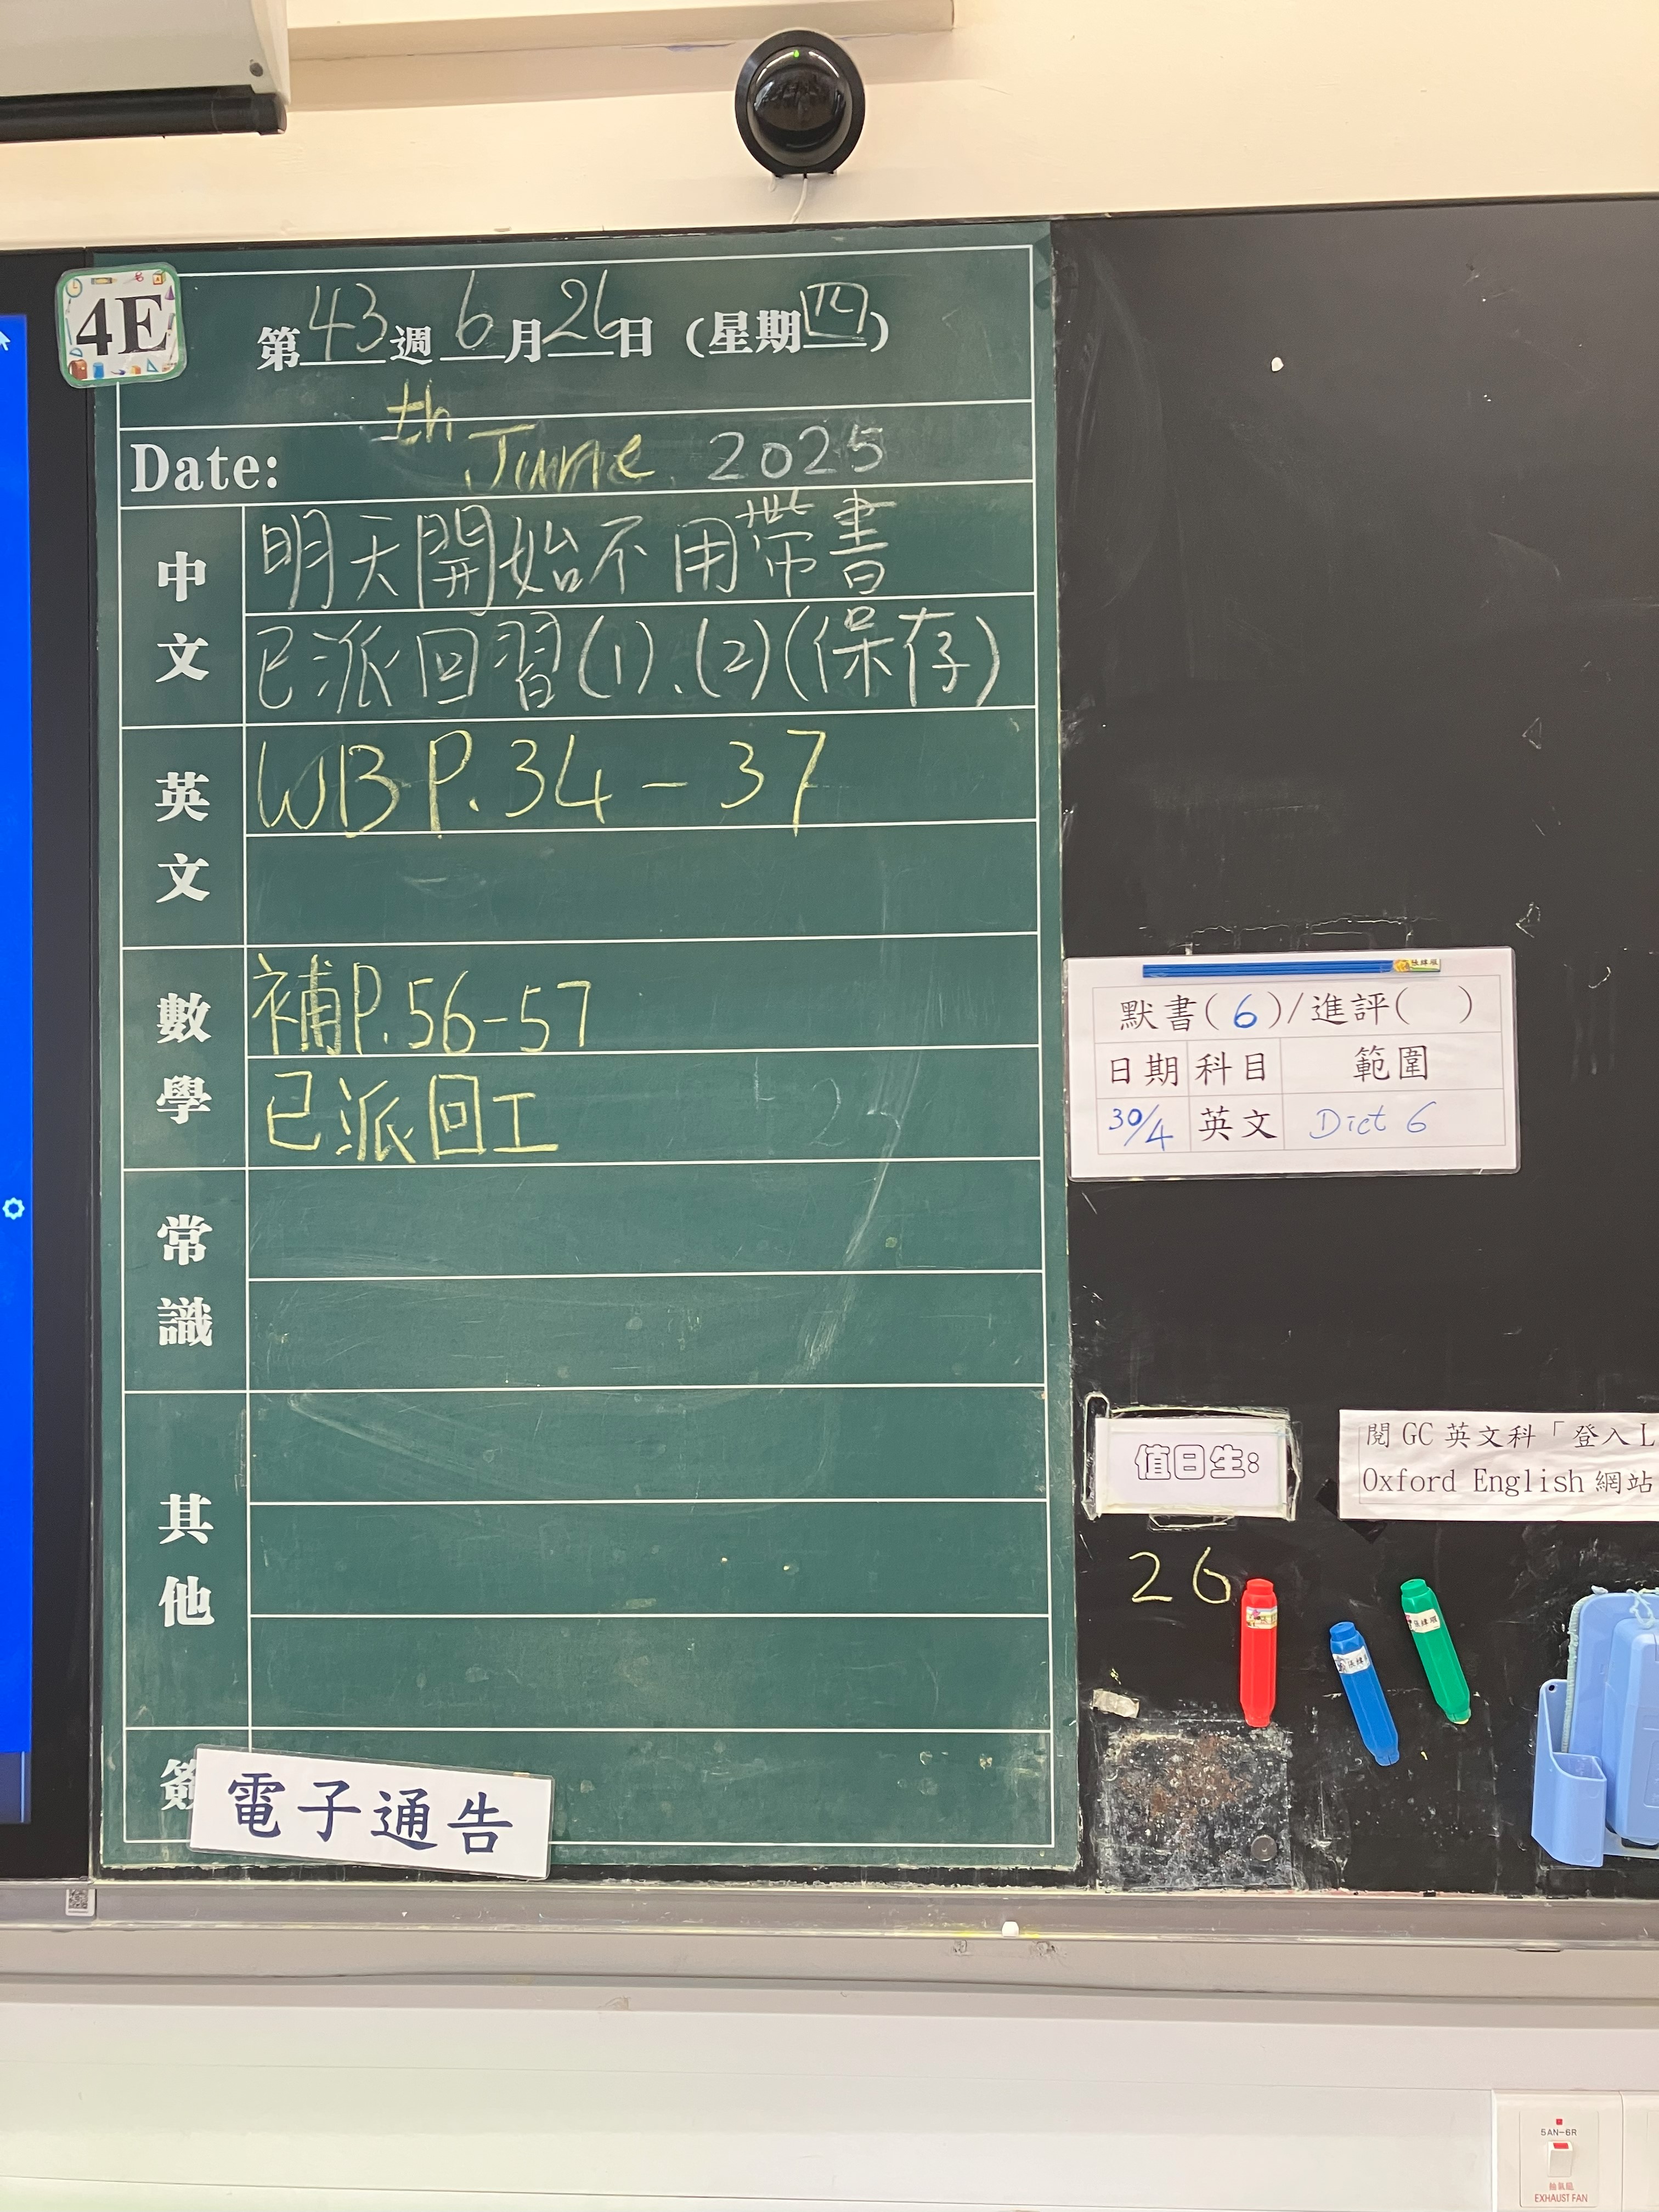 4E
第43週6月26日(星期四)
th
Date: June, 2025
中文
明天開始不用帶書
已派回習(1)、(2)(保存)
英文
WB P.34-37
數學
補P.56-57
已派回工
常識
其他
簽
電子通告
默書(6)/進評( )
日期 科目 範圍
30/4 英文 Dict 6
值日生:
26
閱 GC 英文科「登入 L
Oxford English 網站
5AN-6R
抽氣扇
EXHAUST FAN